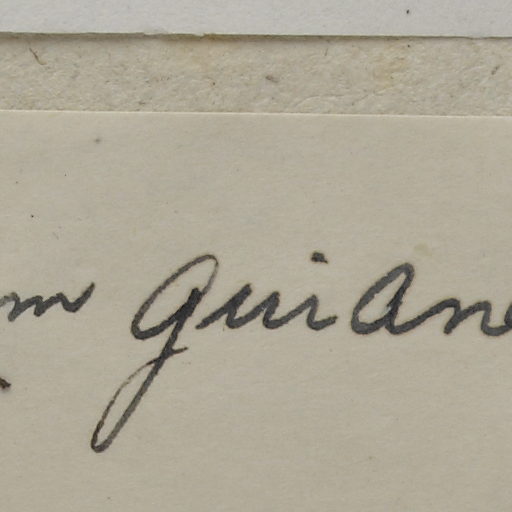 m Guiane